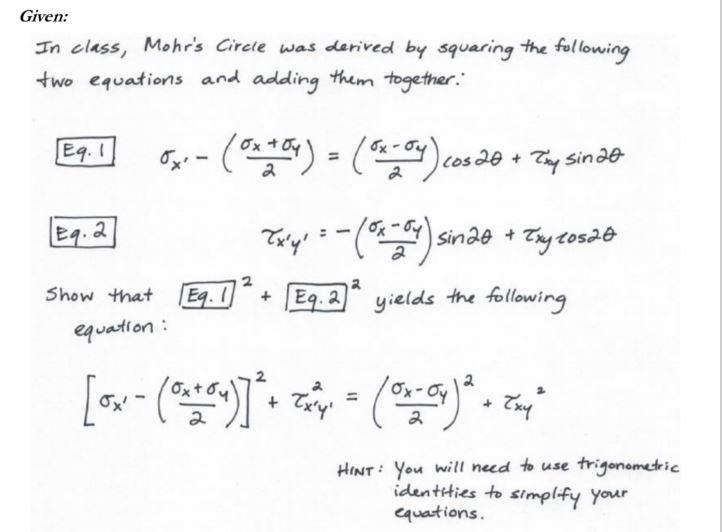 Given:
In class, Mohr's Circle was derived by squaring the following
two equations and adding them together:
Eq. 1 σx' - (σx + σy / 2) = (σx - σy / 2) cos 2θ + τxy sin 2θ
Eq. 2 τx'y' = -(σx - σy / 2) sin 2θ + τxy cos 2θ
Show that [Eq. 1]² + [Eq. 2]² yields the following
equation:
[σx' - (σx + σy / 2)]² + τ²x'y' = (σx - σy / 2)² + τxy²
HINT: You will need to use trigonometric
identities to simplify your
equations.